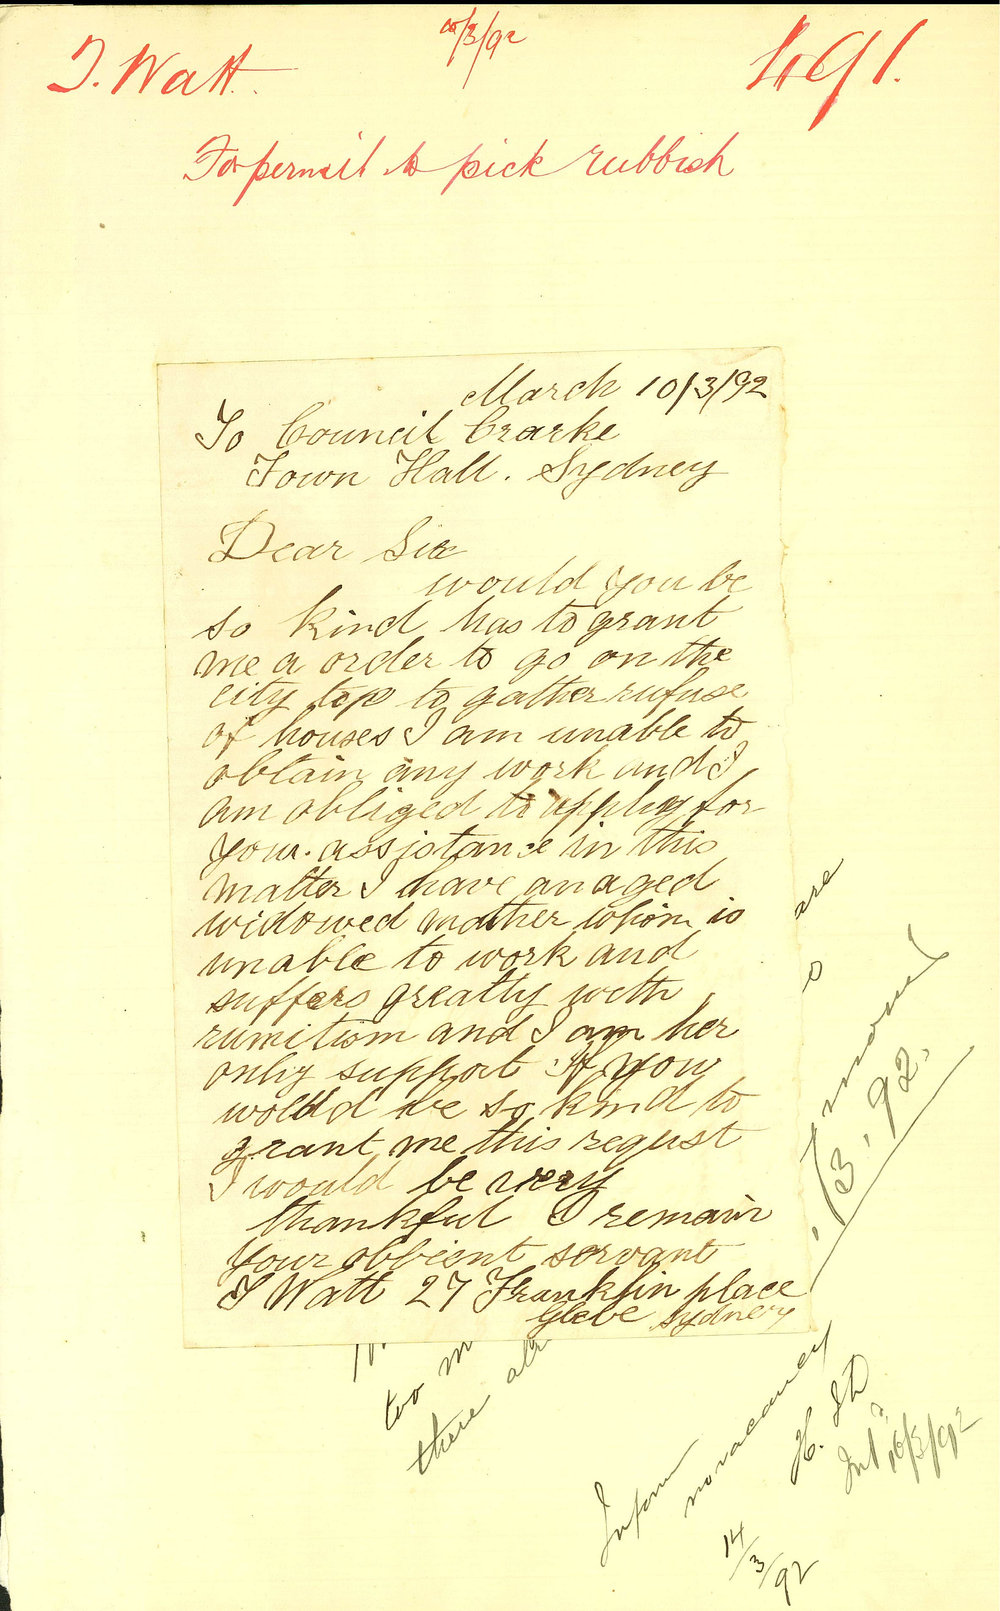 T. Watt.
10/3/92
491.
For permit to pick rubbish
March 10/3/92
To Council Crarke
Town Hall. Sydney
Dear Sir
would you be
so kind has to grant
me a order to go on the
city tope to gather rufuse
of houses I am unable to
obtain any work and I
am obliged to apply for
your assistance in this
matter I have an aged
widowed mother whom is
unable to work and
suffers greatly with
rumitism and I am her
only support If you
would be so kind to
grant me this requst
I would be very
thankful I remain
your obbient servant
T Watt 27 Franklin place
Glebe Sydney
are
3.92.
too m
there alr
Inform
no vacancy
14/3/92
16/3/92